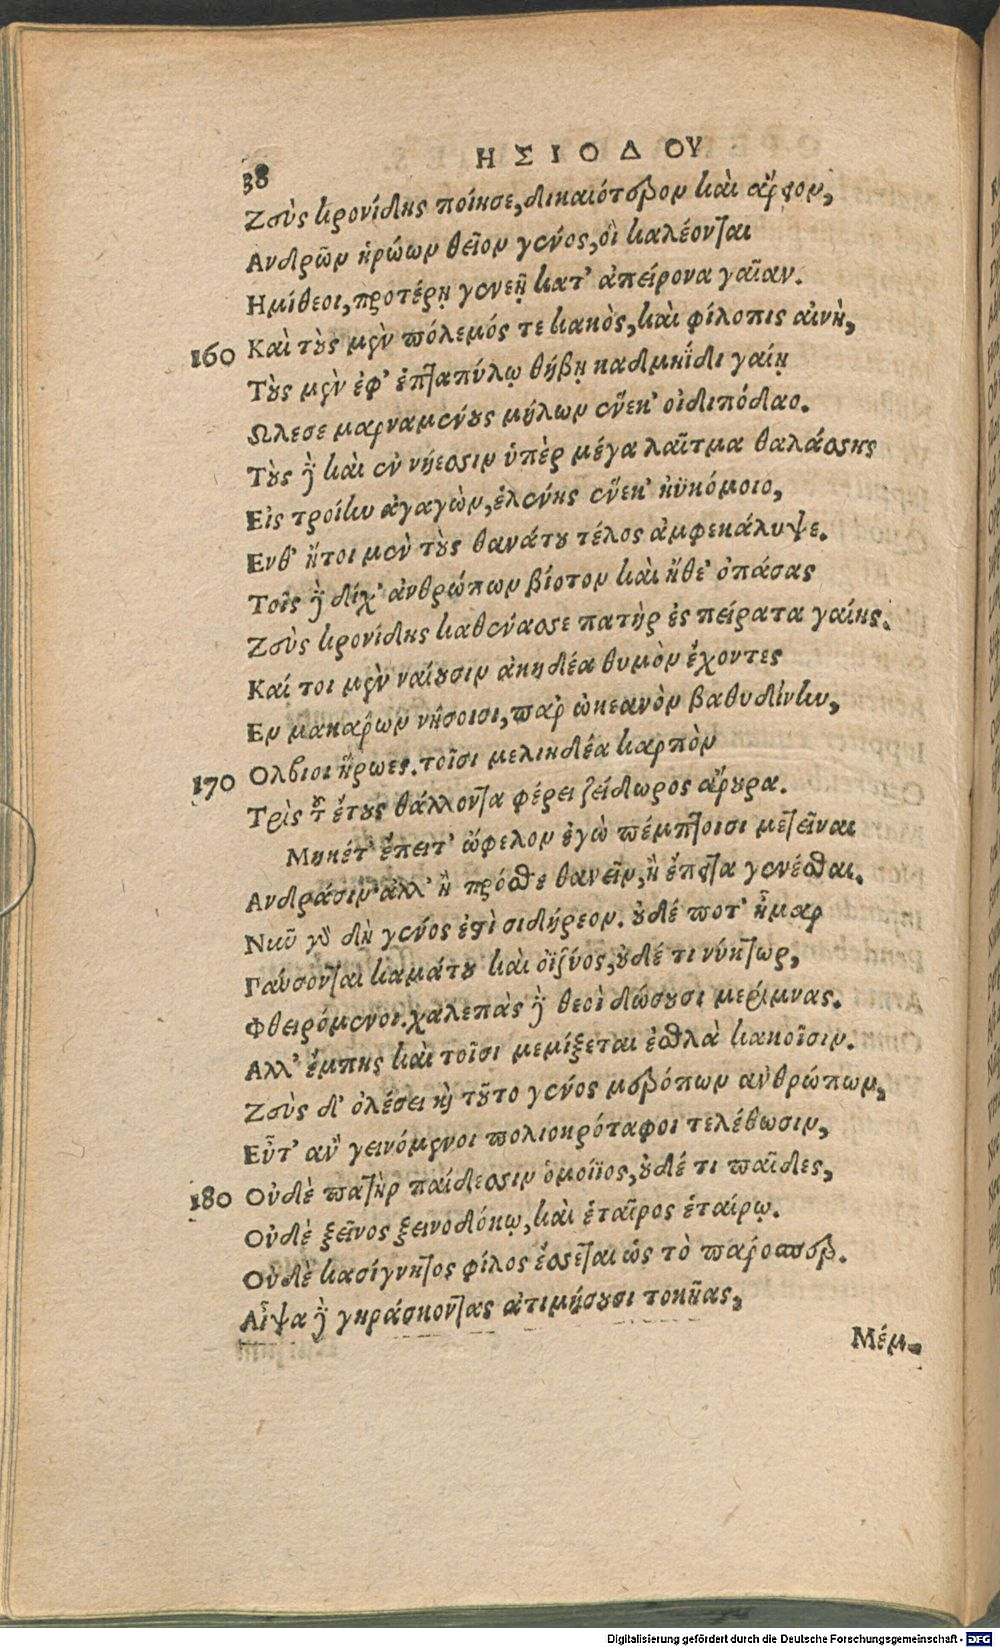 38 ΗΣΙΟΔΟΥ
Ζεὺς κρονίδης ποίησε, δικαιότερον καὶ ἄρειον,
Ανδρῶν ἡρώων θεῖον γένος, οἳ καλέονται
Ημίθεοι, προτέρῃ γενεῇ κατ' ἀπείρονα γαῖαν.
160 Καὶ τοὺς μὲν πόλεμός τε κακὸς, καὶ φύλοπις αἰνὴ,
Τοὺς μὲν ἐφ' ἑπταπύλῳ θήβῃ καδμηΐδι γαίῃ
Ωλεσε μαρναμένους μήλων ἕνεκ' οἰδιπόδαο.
Τοὺς δὲ καὶ ἐν νήεσσιν ὑπὲρ μέγα λαῖτμα θαλάσσης
Εἰς τροίην ἀγαγὼν, ἑλένης ἕνεκ' ἠϋκόμοιο,
Ενθ' ἤτοι μὲν τοὺς θανάτου τέλος ἀμφεκάλυψε.
Τοῖς δὲ δίχ' ἀνθρώπων βίοτον καὶ ἤθε' ὀπάσας
Ζεὺς κρονίδης κατένασσε πατὴρ ἐς πείρατα γαίης.
Καί τοι μὲν ναίουσιν ἀκηδέα θυμὸν ἔχοντες
Εν μακάρων νήσοισι, παρ' ὠκεανὸν βαθυδίνην,
170 Ολβιοι ἥρωες. τοῖσι μελιηδέα καρπὸν
Τρὶς τοῦ ἔτους θάλλοντα φέρει ζείδωρος ἄρουρα.
Μηκέτ' ἔπειτ' ὤφελον ἐγὼ πέμπτοισι μετεῖναι
Ανδράσιν· ἀλλ' ἢ πρόσθε θανεῖν, ἢ ἔπειτα γενέσθαι.
Νῦν γὰρ δὴ γένος ἐστὶ σιδήρεον. οὐδέ ποτ' ἦμαρ
Παύσονται καμάτου καὶ ὀϊζύος, οὐδέ τι νύκτωρ,
Φθειρόμενοι. χαλεπὰς δὲ θεοὶ δώσουσι μερίμνας.
Αλλ' ἔμπης καὶ τοῖσι μεμίξεται ἐσθλὰ κακοῖσιν.
Ζεὺς δ' ὀλέσει καὶ τοῦτο γένος μερόπων ἀνθρώπων,
Εὖτ' ἂν γεινόμενοι πολιοκρόταφοι τελέθωσιν,
180 Οὐδὲ πατὴρ παίδεσσιν ὁμοίϊος, οὐδέ τι παῖδες,
Οὐδὲ ξεῖνος ξεινοδόκῳ, καὶ ἑταῖρος ἑταίρῳ.
Οὐδὲ κασίγνητος φίλος ἔσσεται ὡς τὸ πάροσπερ.
Αἶψα δὲ γηράσκοντας ἀτιμήσουσι τοκῆας,
Μέμ-
Digitalisierung gefördert durch die Deutsche Forschungsgemeinschaft - DFG